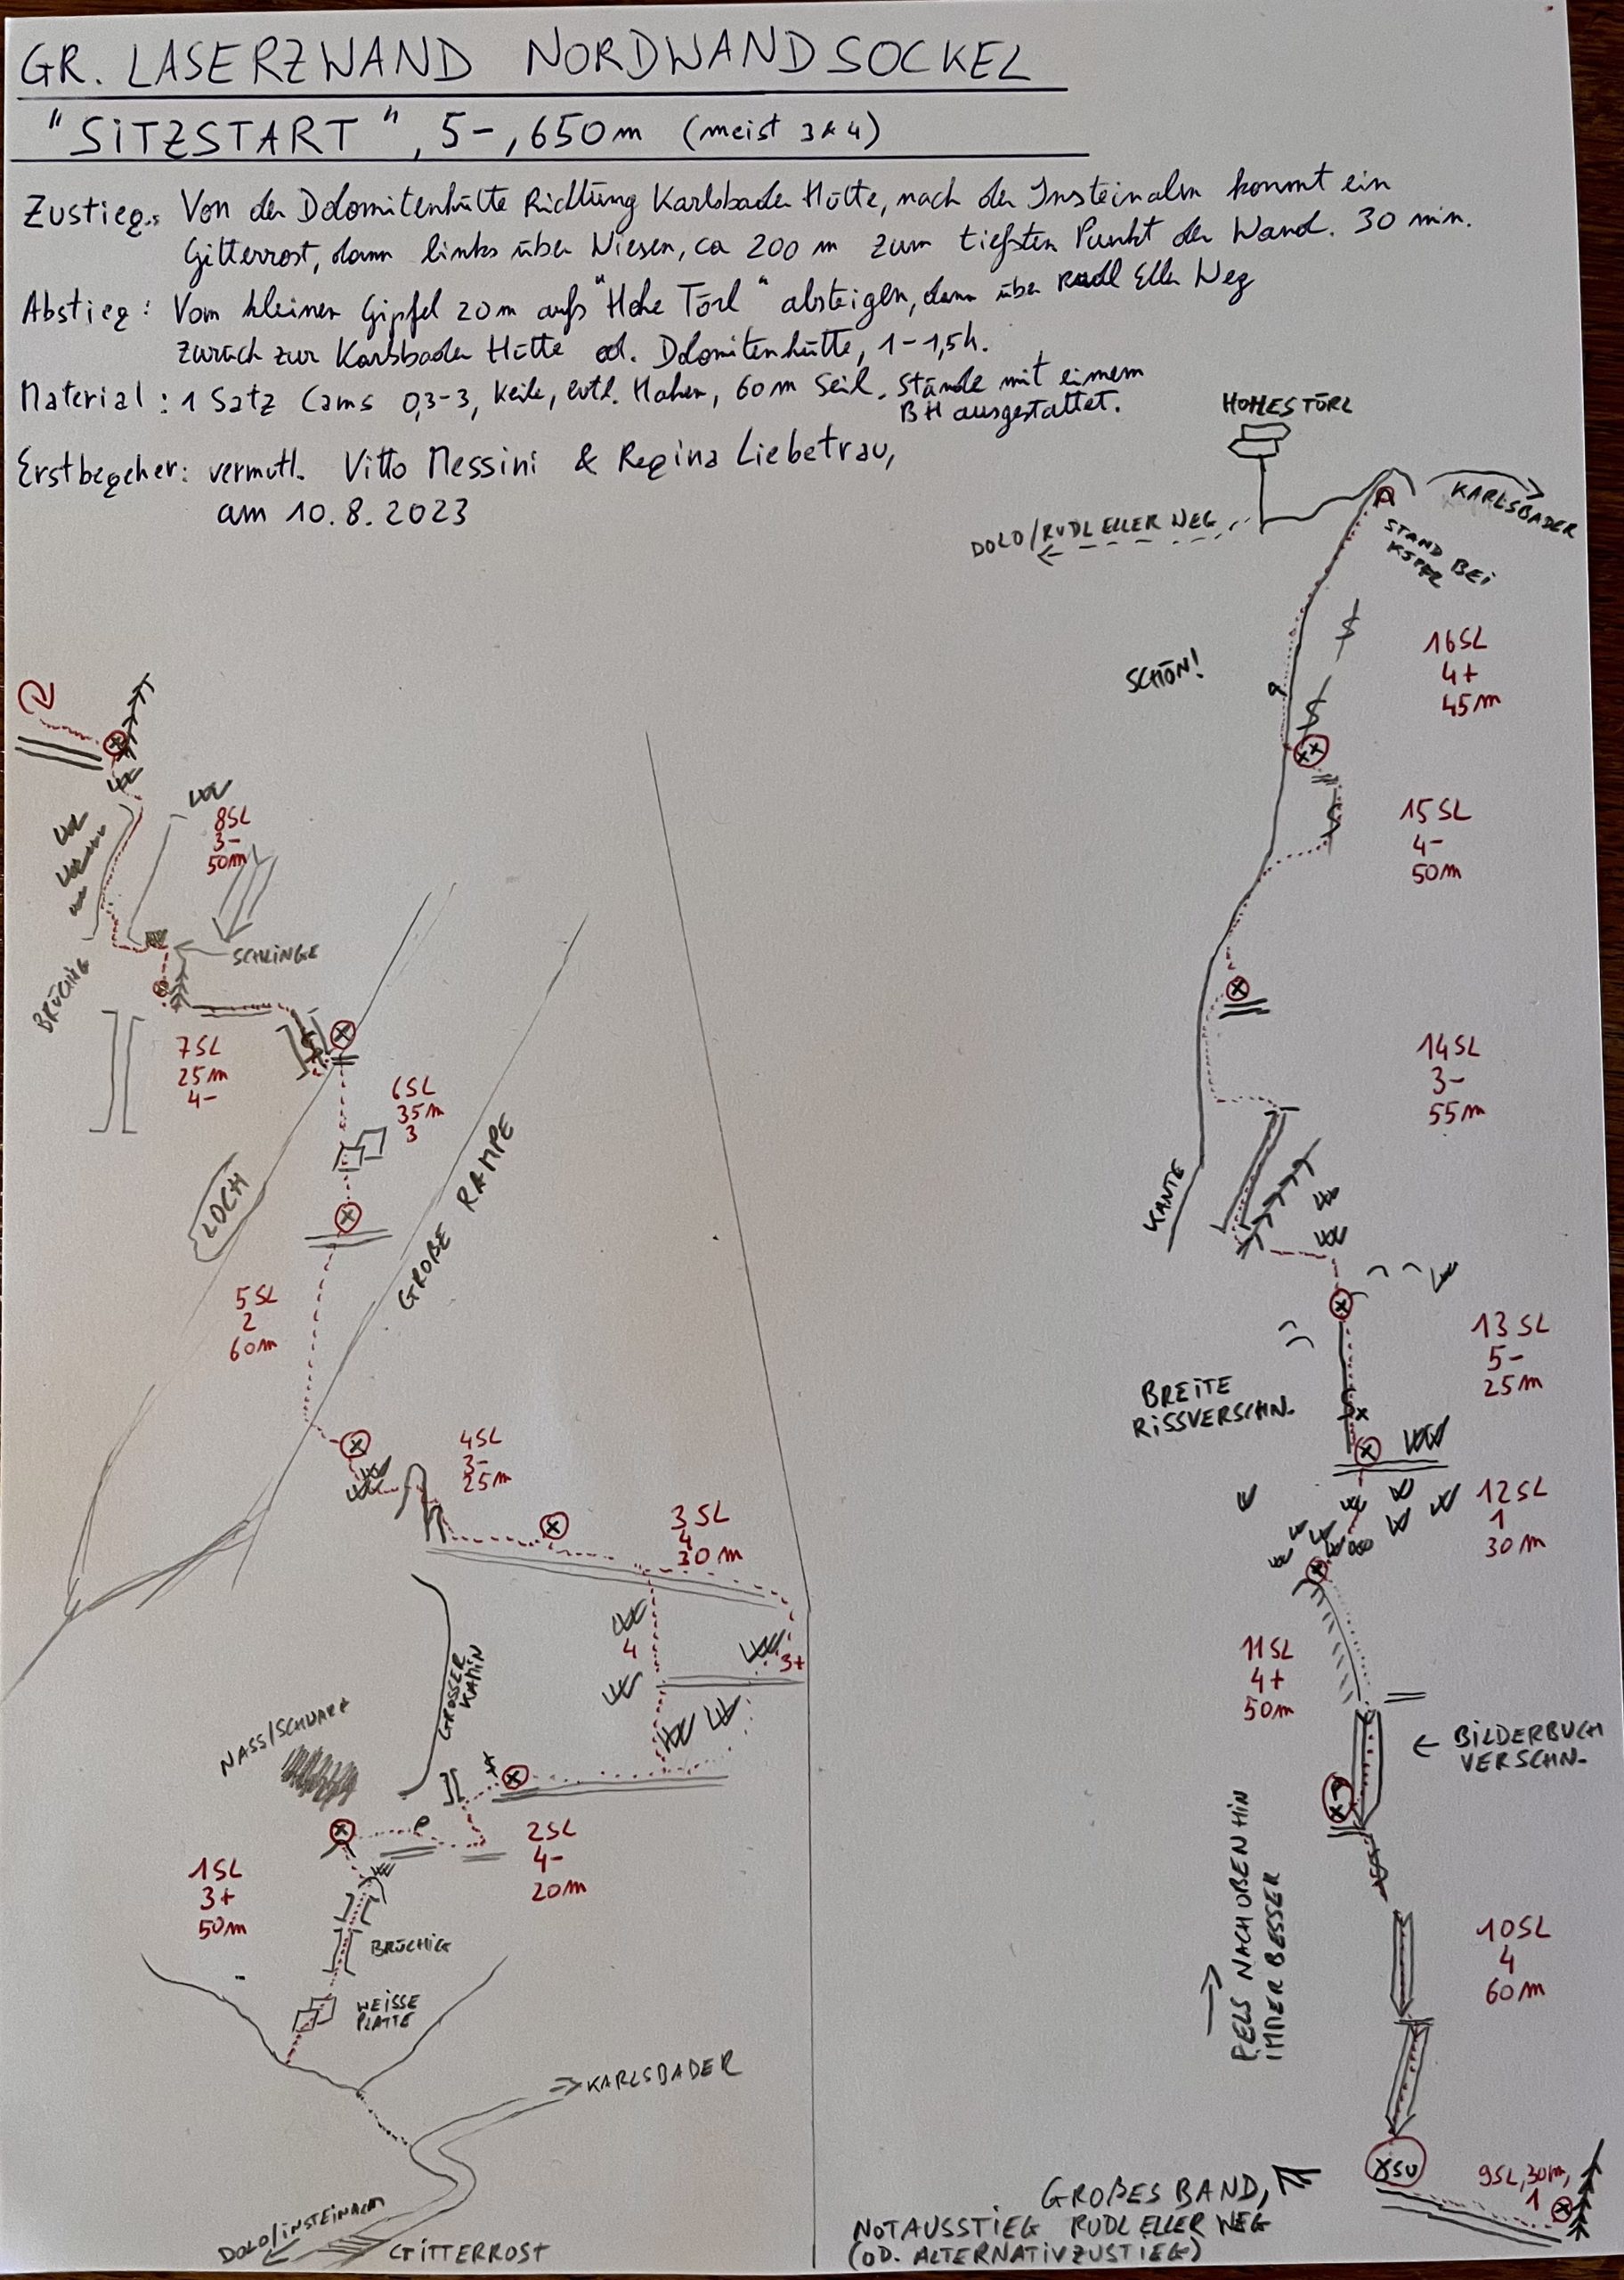 GR. LASERZWAND NORDWANDSOCKEL
"SITZSTART", 5-, 650m (meist 3&4)
Zustieg: Von der Dolomitenhütte Richtung Karlsbader Hütte, nach der Insteinalm kommt ein
Gitterrost, dann links über Wiesen, ca 200 m zum tiefsten Punkt der Wand. 30 min.
Abstieg: Vom kleinen Gipfel 20m aufs "Hohe Törl" absteigen, dann über Rudl Eller Weg
zurück zur Karlsbader Hütte od. Dolomitenhütte, 1-1,5h.
Material: 1 Satz Cams 0,3-3, Keile, evtl. Haken, 60m Seil. Stände mit einem
BH ausgestattet.
Erstbegeher: vermutl. Vitto Messini & Regina Liebetrau,
am 10.8.2023
HOHES TÖRL
KARLSBADER
DOLO/RUDL ELLER WEG
STAND BEI
SCHÖN!
16SL
4+
45m
15SL
4-
50m
14SL
3-
55m
KANTE
13SL
5-
25m
BREITE
RISSVERSCHN.
12SL
1
30m
11SL
4+
50m
← BILDERBUCH
VERSCHN.
FELS NACH OBEN HIN
IMMER BESSER
10SL
4
60m
XSU
9SL, 30m,
1
GROßES BAND,
NOTAUSSTIEG RUDL ELLER WEG
(OD. ALTERNATIVZUSTIEG)
8SL
3-
50m
SCHLINGE
BRÜCHIG
7SL
25m
4-
6SL
35m
3
LOCH
GROßE RAMPE
5SL
2
60m
4SL
3-
25m
3SL
4
30m
4
3+
GROSSER
KAMIN
NASS/SCHWARZ
2SL
4-
20m
1SL
3+
50m
BRÜCHIG
WEISSE
PLATTE
KARLSBADER
DOLO/INSTEINALM
GITTERROST